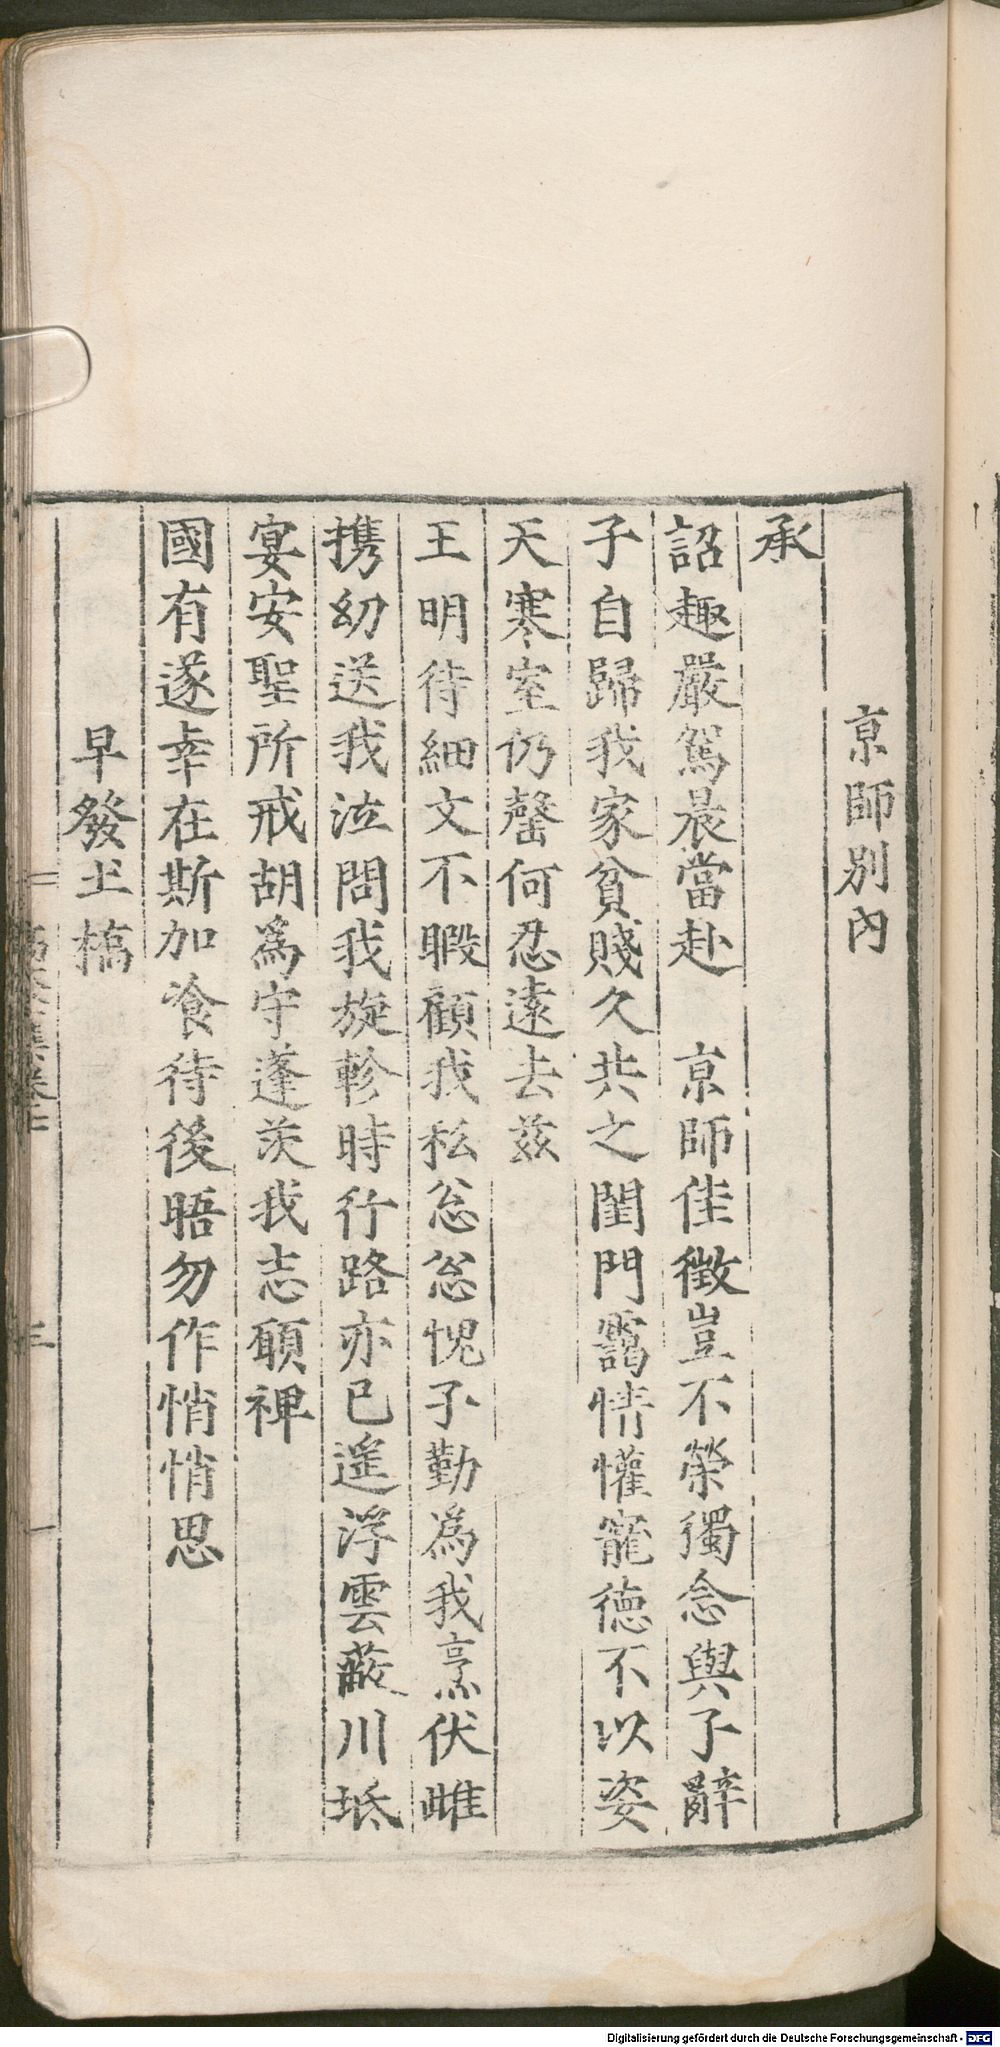 京師別内
承
詔趣嚴駕晨當赴　京師佳徵豈不榮獨念與子辭
子自歸我家貧賤久共之閨門靄情懽寵德不以姿
天寒室仍罄何忍遠去兹
王明待細文不暇顧我私忩忩愧子勤為我烹伏雌
携幼送我泣問我旋軫時行路亦已遥浮雲蔽川坻
宴安聖所戒胡爲守蓬茨我志願裨
國有遂幸在斯加飡待後晤勿作悄悄思
早發土橋
Digitalisierung gefördert durch die Deutsche Forschungsgemeinschaft - DFG